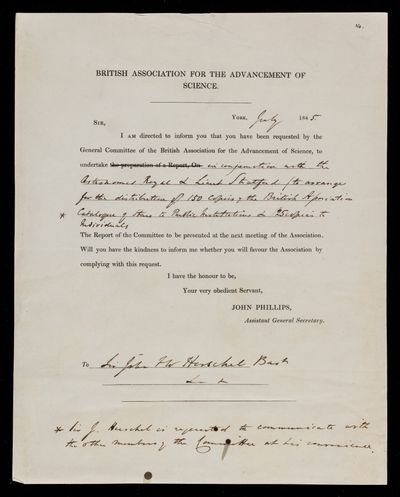 14.
BRITISH ASSOCIATION FOR THE ADVANCEMENT OF
SCIENCE.
YORK, July 1845
SIR,
I AM directed to inform you that you have been requested by the
General Committee of the British Association for the Advancement of Science, to
undertake the preparation of a Report, On in conjunction with the
Astronomer Royal & Lieut Stratford (to arrange
for the distribution of 150 copies of the British Association
* Catalogue of Stars to Public Institutions & 25 copies to
Individuals
The Report of the Committee to be presented at the next meeting of the Association.
Will you have the kindness to inform me whether you will favour the Association by
complying with this request.
I have the honour to be,
Your very obedient Servant,
JOHN PHILLIPS,
Assistant General Secretary.
To Sir John F W Herschel Bart
&c &c
* Sir J. Herschel is requested to communicate with
the other members of the Committee at his convenience.